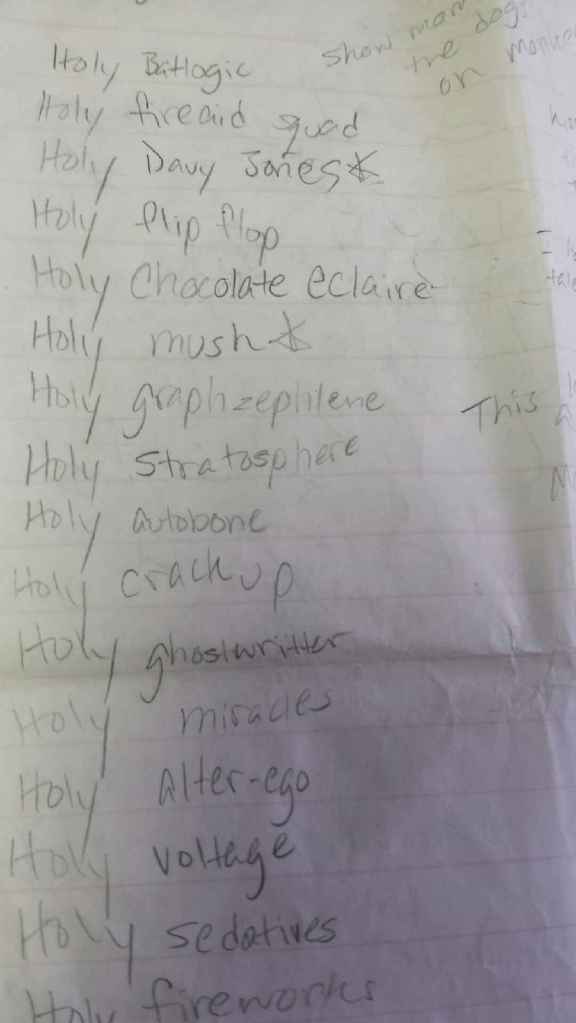 Holy Batlogic
show mom
the dogs
on
Holy fireaid squad
Holy Davy Jones*
Holy flip flop
Holy Chocolate eclaire
Holy mush*
Holy graphzephlene
This
Holy Stratosphere
Holy autobone
Holy crack up
Holy ghostwritter
Holy miracles
Holy alter-ego
Holy voltage
Holy sedatives
Holy fireworks